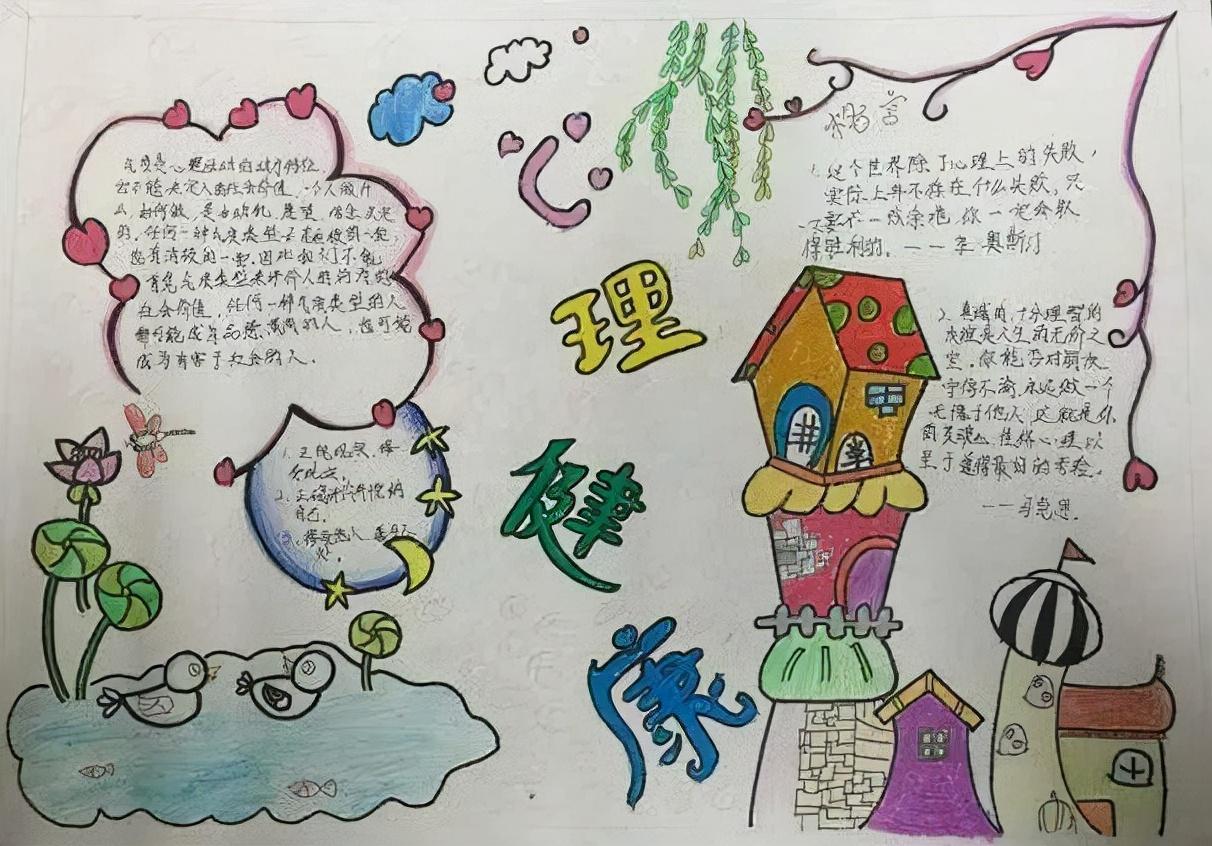 气质是心理活动的动力特征,
它不能决定人的社会价值,一个人做什
么,如何做,是由动机、愿望、信念决定
的。任何一种气质类型都有积极的一面,
也有消极的一面。因此我们不能
气质类型来评价人的
社会价值,任何一种气质类型的人
都可能成为品德高尚的人,也可能
成为有害于社会的人。
1. 正视现实,
2. 正确评价
自己。
3.
心
理
健
康
格言
1. 这个世界除了心理上的失败,
实际上并不存在什么失败,只
要不一败涂地,你一定会取
得胜利的。——亨·奥斯汀
2. 真诚的、十分理智的
友谊是人生的无价之
宝。你能否对朋友
守信不渝,永远做一个
无愧于他人,这就是你
的灵魂、性格、心理以
至于道德最好的考验。
——马克思